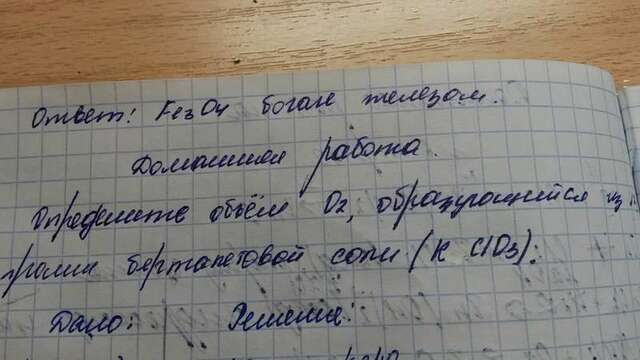 Ответ: Fe3O4 богат железом.
Домашняя работа.
Определите объём O2, образующейся из
бертолетовой соли (K ClO3):
Дано: Решение: